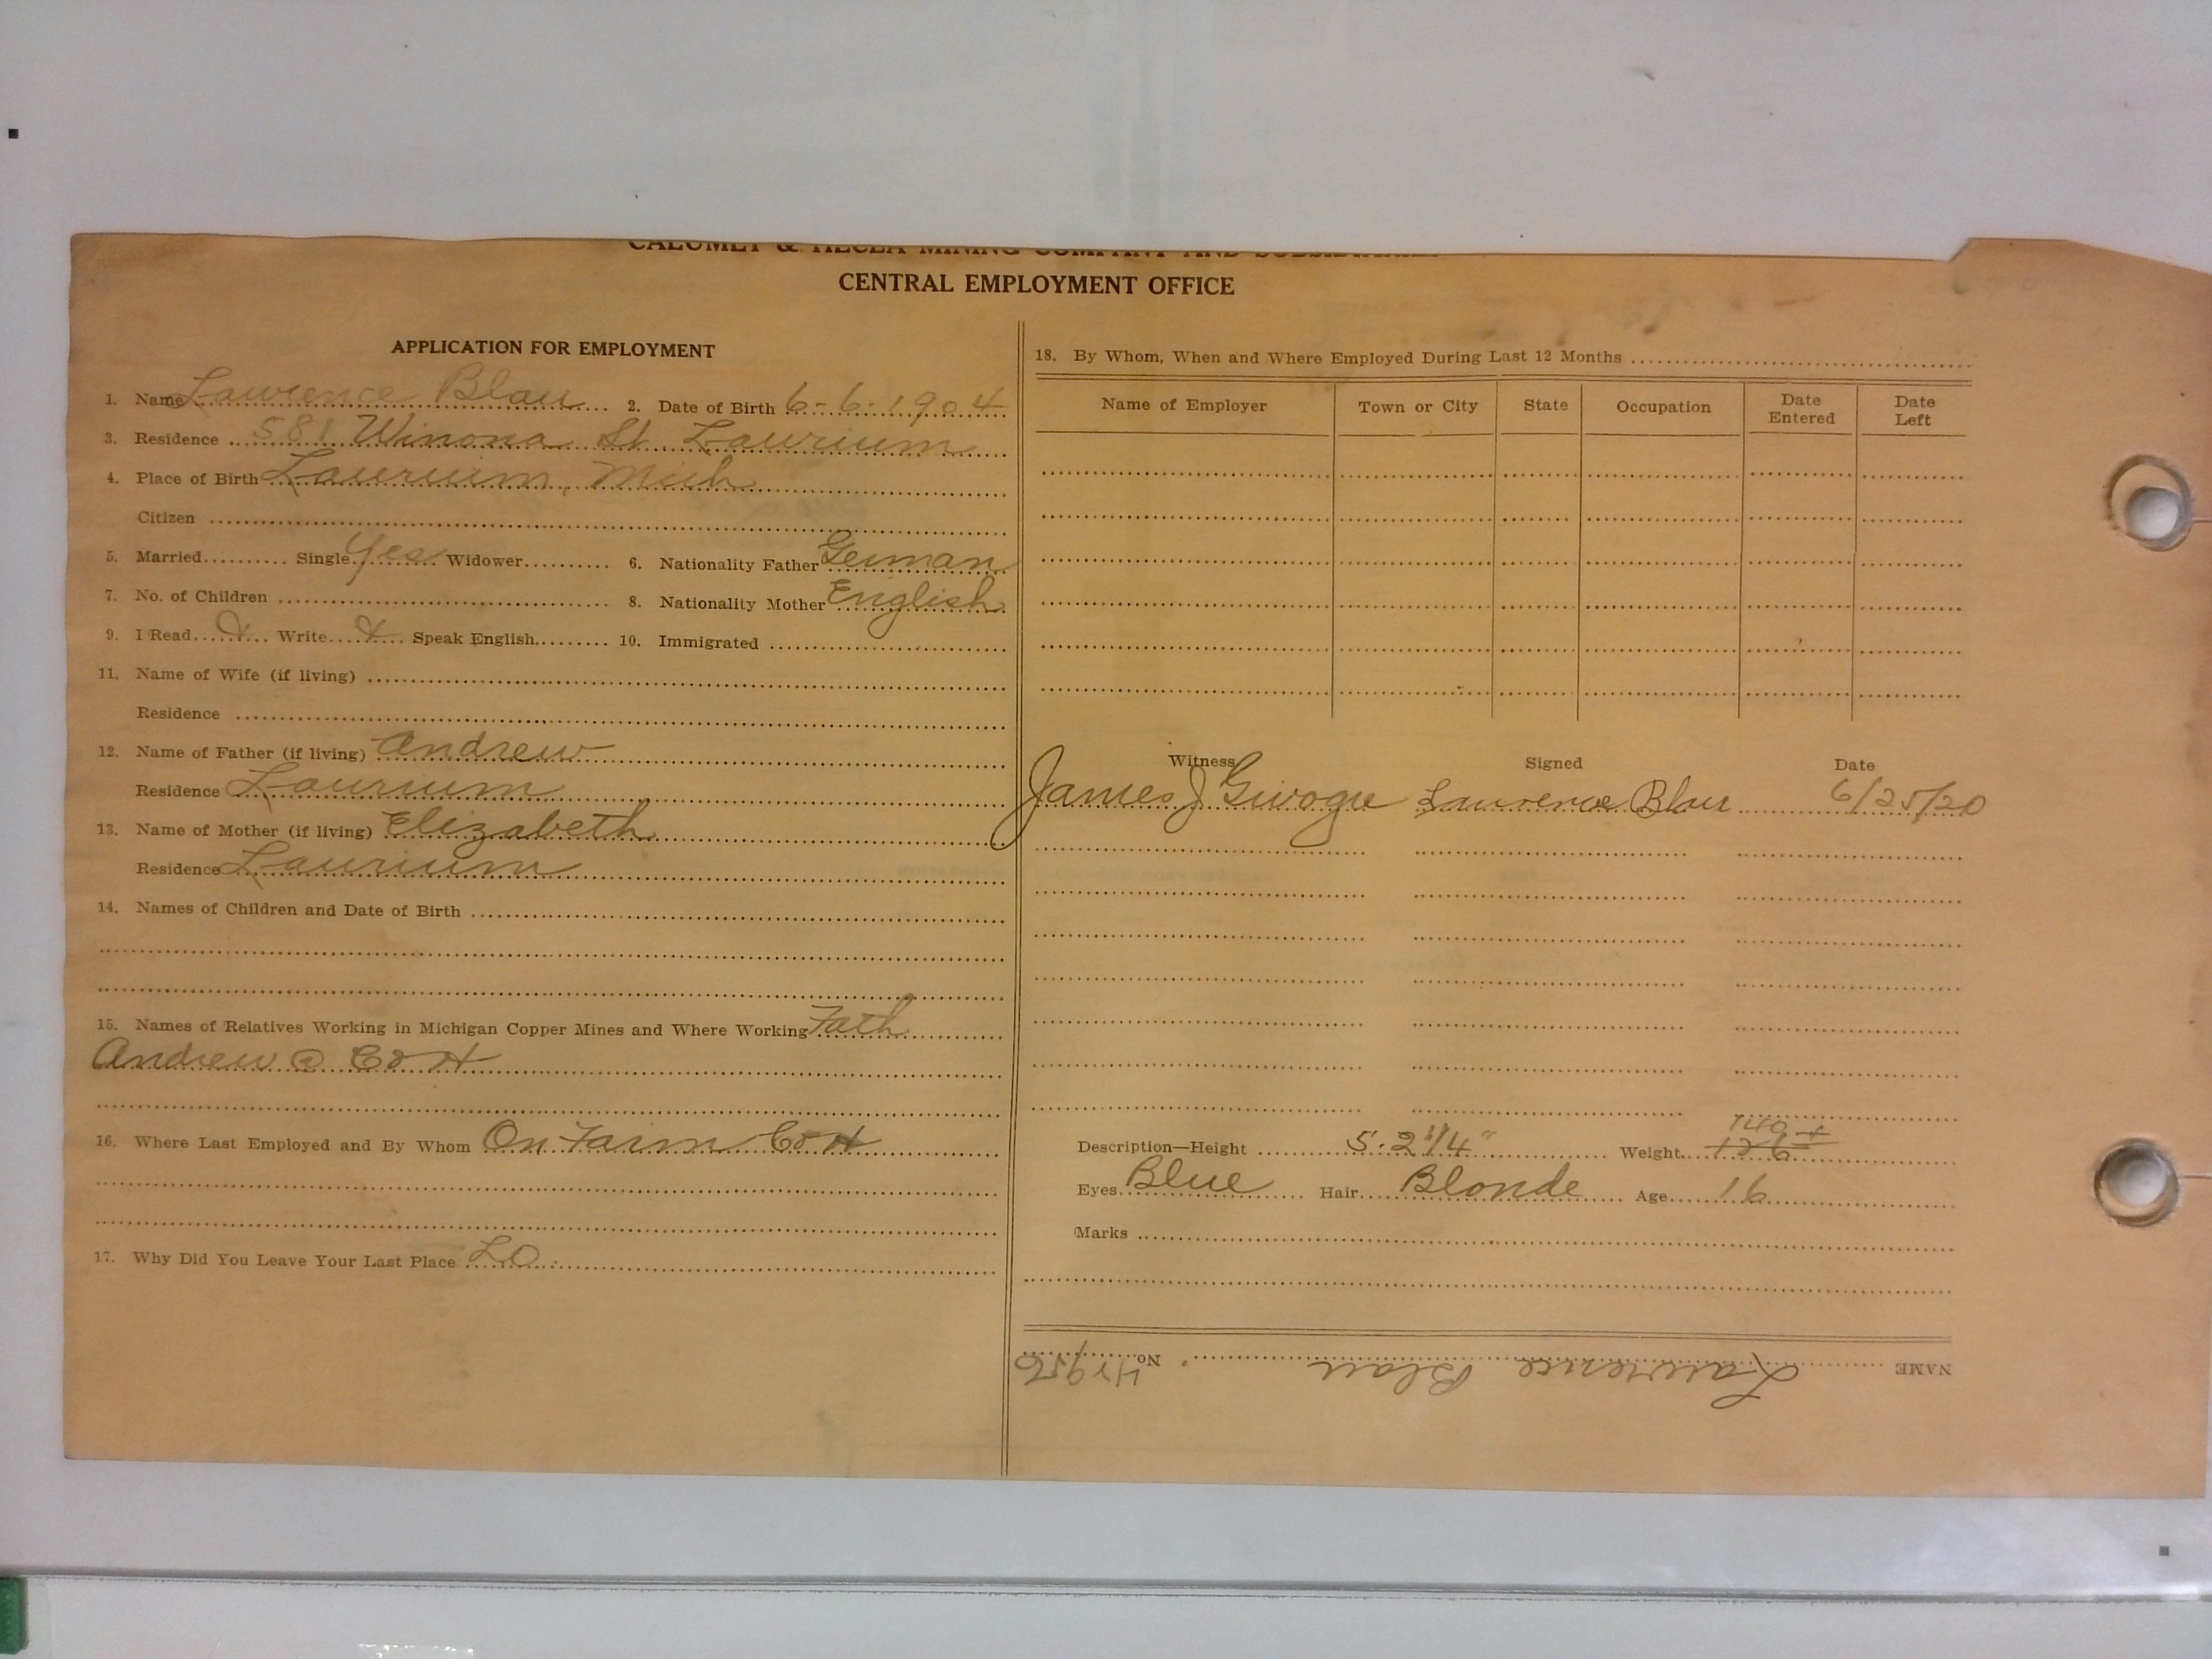 CALUMET & HECLA MINING COMPANY AND SUBSIDIARIES
CENTRAL EMPLOYMENT OFFICE
APPLICATION FOR EMPLOYMENT
1. Name Lawrence Blau 2. Date of Birth 6-6-1904
3. Residence 581 Winona St. Laurium
4. Place of Birth Laurium, Mich
Citizen
5. Married Single Yes Widower 6. Nationality Father German
7. No. of Children 8. Nationality Mother English
9. I Read Write Speak English 10. Immigrated
11. Name of Wife (if living)
Residence
12. Name of Father (if living) Andrew
Residence Laurium
13. Name of Mother (if living) Elizabeth
Residence Laurium
14. Names of Children and Date of Birth
15. Names of Relatives Working in Michigan Copper Mines and Where Working Fath
Andrew @ C & H
16. Where Last Employed and By Whom On Farm C & H
17. Why Did You Leave Your Last Place LO
18. By Whom, When and Where Employed During Last 12 Months
Name of Employer Town or City State Occupation Date Entered Date Left
Witness Signed Date
James J Lawrence Blau 6/25/20
140 +
Description—Height 5' 2 1/4" Weight 126
Eyes Blue Hair Blonde Age 16
Marks
NAME Lawrence Blau No.